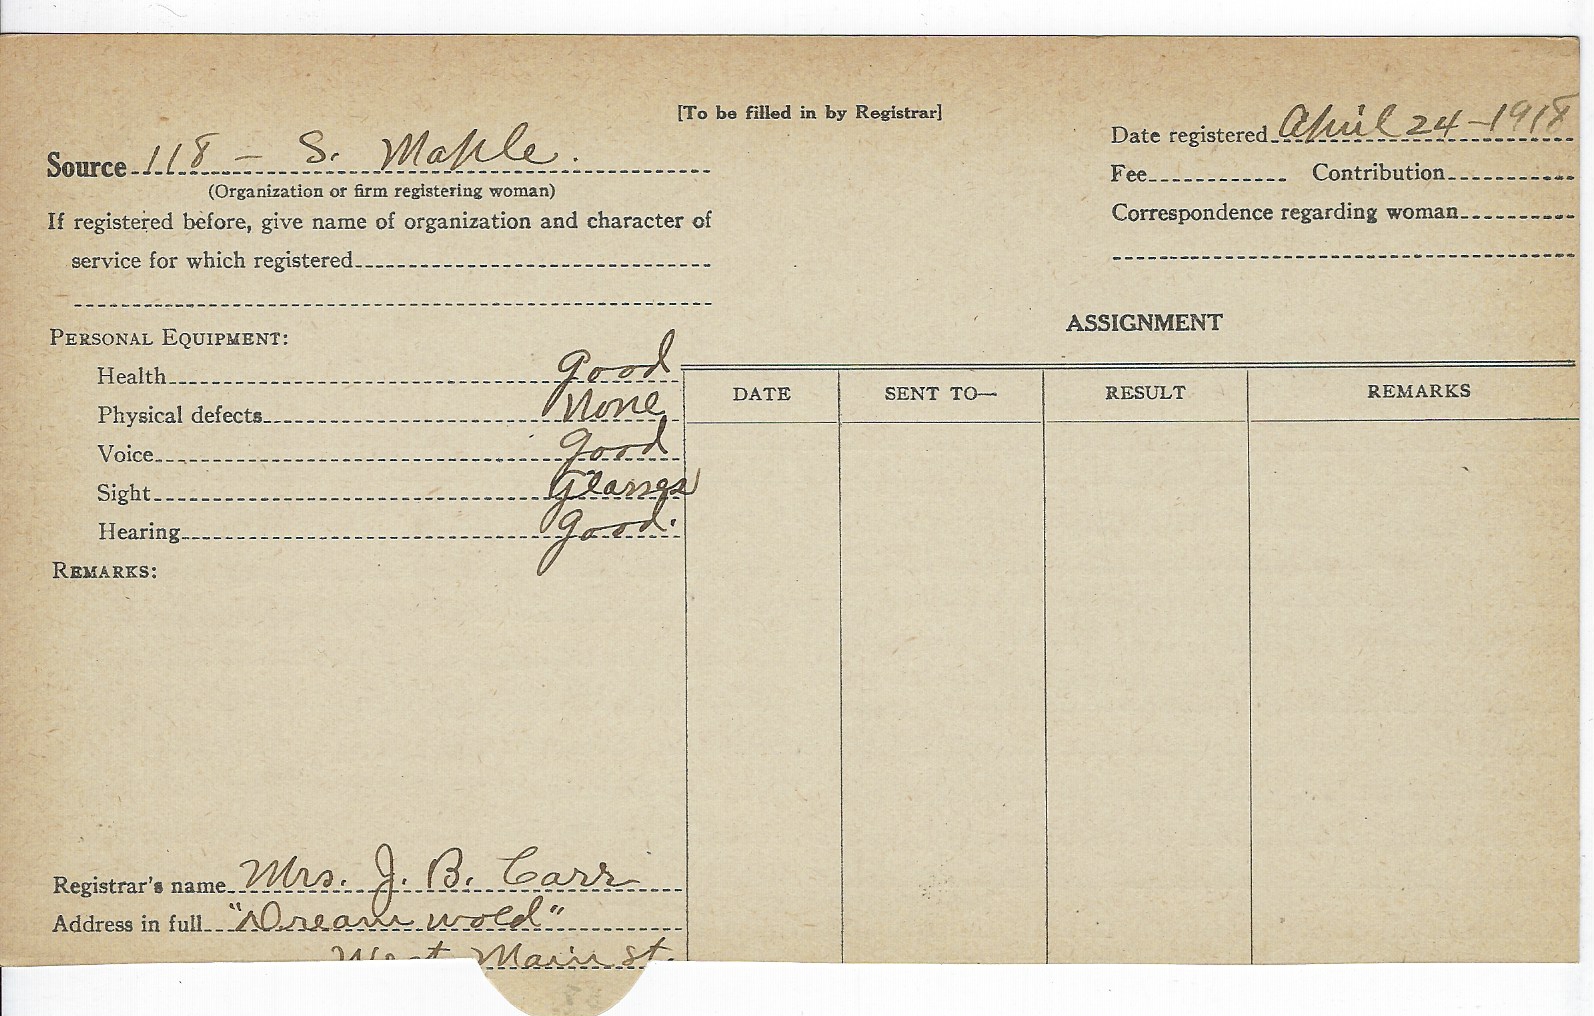 [To be filled in by Registrar]
Source 118 - S. Maple.
(Organization or firm registering woman)
If registered before, give name of organization and character of
service for which registered
Date registered April 24-1918
Fee Contribution
Correspondence regarding woman
PERSONAL EQUIPMENT:
Health Good
Physical defects None
Voice Good
Sight Glasses
Hearing Good.
REMARKS:
ASSIGNMENT
DATE SENT TO— RESULT REMARKS
Registrar's name Mrs. J. B. Carr
Address in full "Dreamwold"
West Main St.